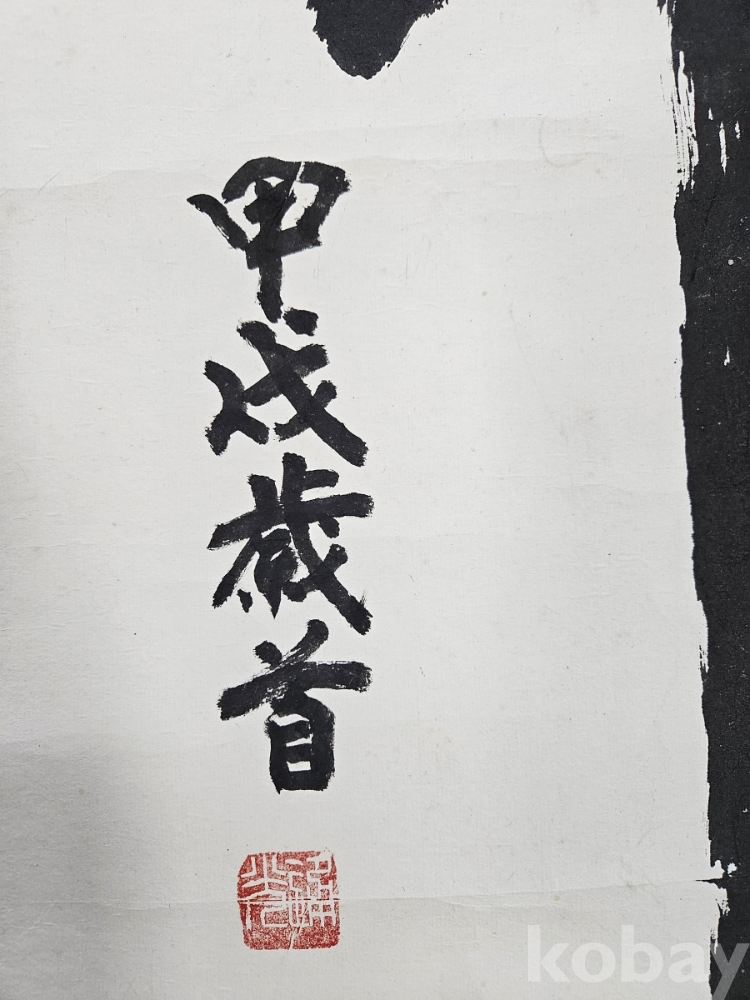 甲戌歲首
kobay